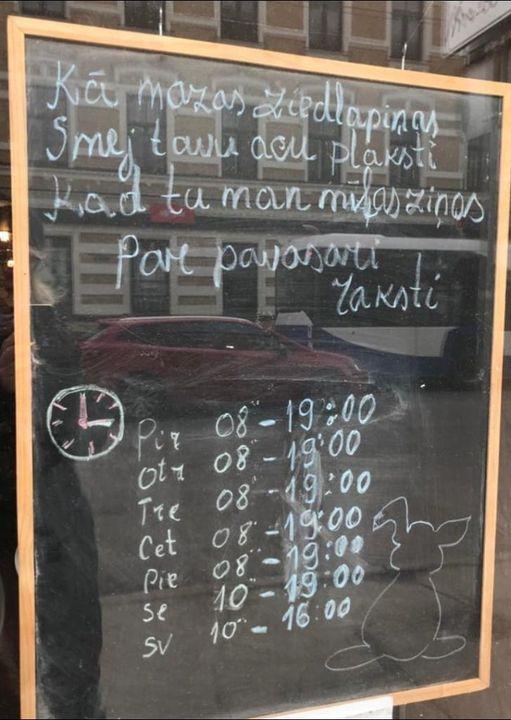 Kā mazas ziedlapiņas
Smej tavu acu plaksti
Kad tu man mīļas ziņas
Par pavasari
raksti
Pir 08⁰⁰ - 19:00
Otr 08⁰⁰ - 19:00
Tre 08⁰⁰ - 19:00
Cet 08⁰⁰ - 19:00
Pie 08⁰⁰ - 19:00
Se 10⁰⁰ - 19:00
Sv 10⁰⁰ - 16:00